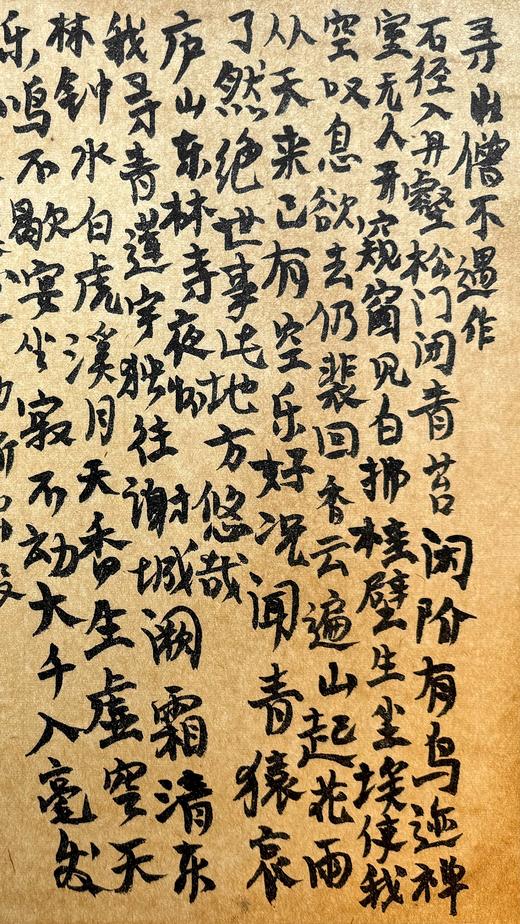 寻山僧不遇作
石径入丹壑松门闭青苔闲阶有鸟迹禅
室无人开窥窗见白拂桂壁生尘埃使我
空叹息欲去仍裴回香云遍山起花雨
从天来已有空乐好况闻青猿哀
了然绝世事此地方悠哉
庐山东林寺夜怀
我寻青莲宇独往谢城阙霜清东
林钟水白虎溪月天香生虚空天
乐鸣不歇宴坐寂不动大千入毫发